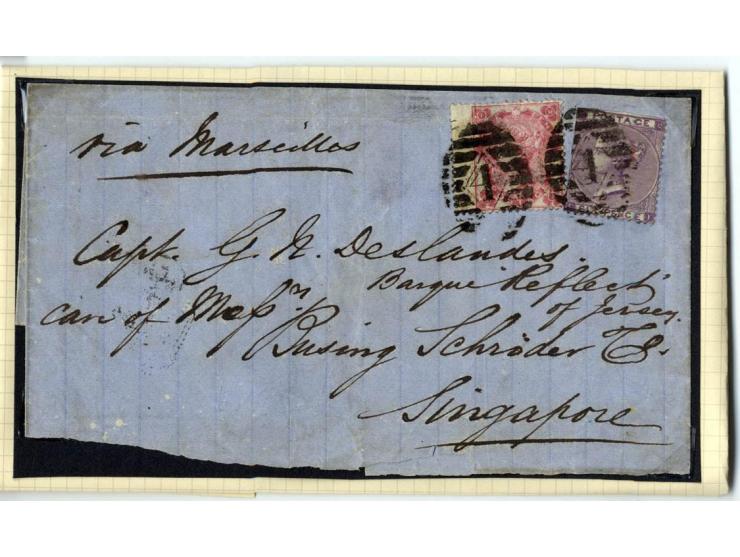 via Marseilles
Capt. G. N. Deslandes.
Barque "Reflect"
of Jersey.
care of Messrs
Pusing Schröder & Co.
Singapore
POSTAGE
SIXPENCE